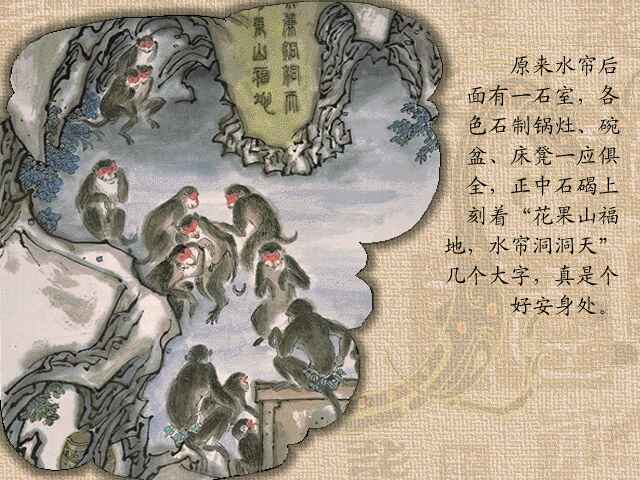 原来水帘后
面有一石室，各
色石制锅灶、碗
盆、床凳一应俱
全，正中石碣上
刻着“花果山福
地，水帘洞洞天”
几个大字，真是个
好安身处。
果山福地
帘洞洞天